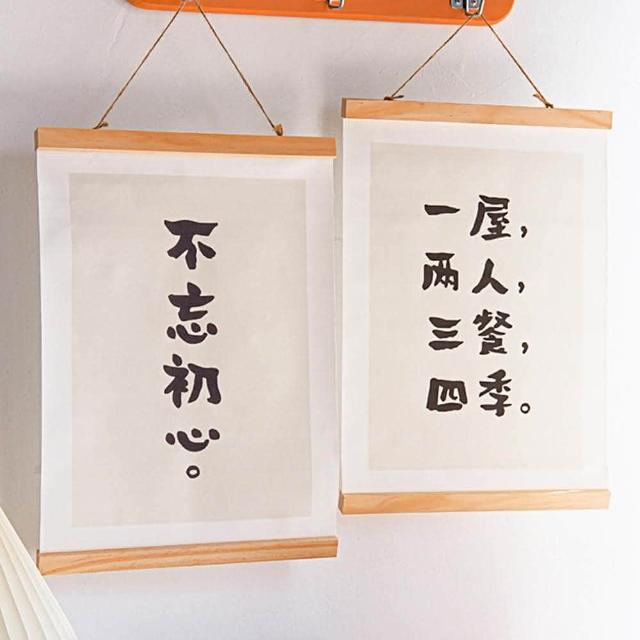 不忘初心。
一屋，
两人，
三餐，
四季。